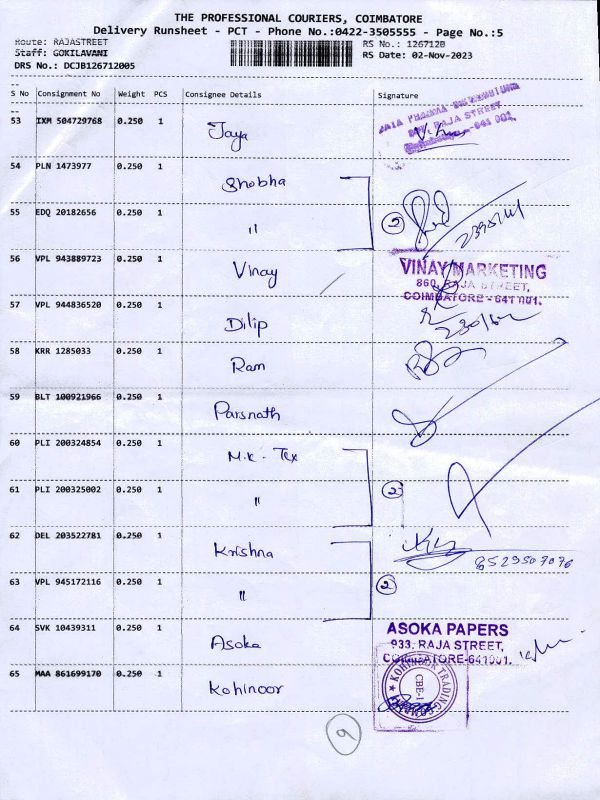 THE PROFESSIONAL COURIERS, COIMBATORE
Delivery Runsheet - PCT - Phone No.:0422-3505555 - Page No.:5
Route: RAJASTREET RS No.: 126712B
Staff: GOKILAVANI RS Date: 02-Nov-2023
DRS No.: DCJB126712005
S No Consignment No Weight PCS Consignee Details Signature
53 IXM 504729768 0.250 1 Jaya
RAJA STREET
641 001.
54 PLN 1473977 0.250 1 Shobha
55 EDQ 20182656 0.250 1 " 2
56 VPL 943889723 0.250 1 Vinay
VINAY MARKETING
860, RAJA STREET,
COIMBATORE - 641 001.
57 VPL 944836520 0.250 1 Dilip
58 KRR 1285033 0.250 1 Ram
59 BLT 100921966 0.250 1 Parsnath
60 PLI 200324854 0.250 1 M.K. Tex
61 PLI 200325002 0.250 1 " 2
62 DEL 203522781 0.250 1 Krishna
8529507076
63 VPL 945172116 0.250 1 " 2
64 SVK 10439311 0.250 1 Asoka
ASOKA PAPERS
933, RAJA STREET,
COIMBATORE-641001.
65 MAA 861699170 0.250 1 Kohinoor
KOHINOOR TRADING COMPANY
CBE-1
9